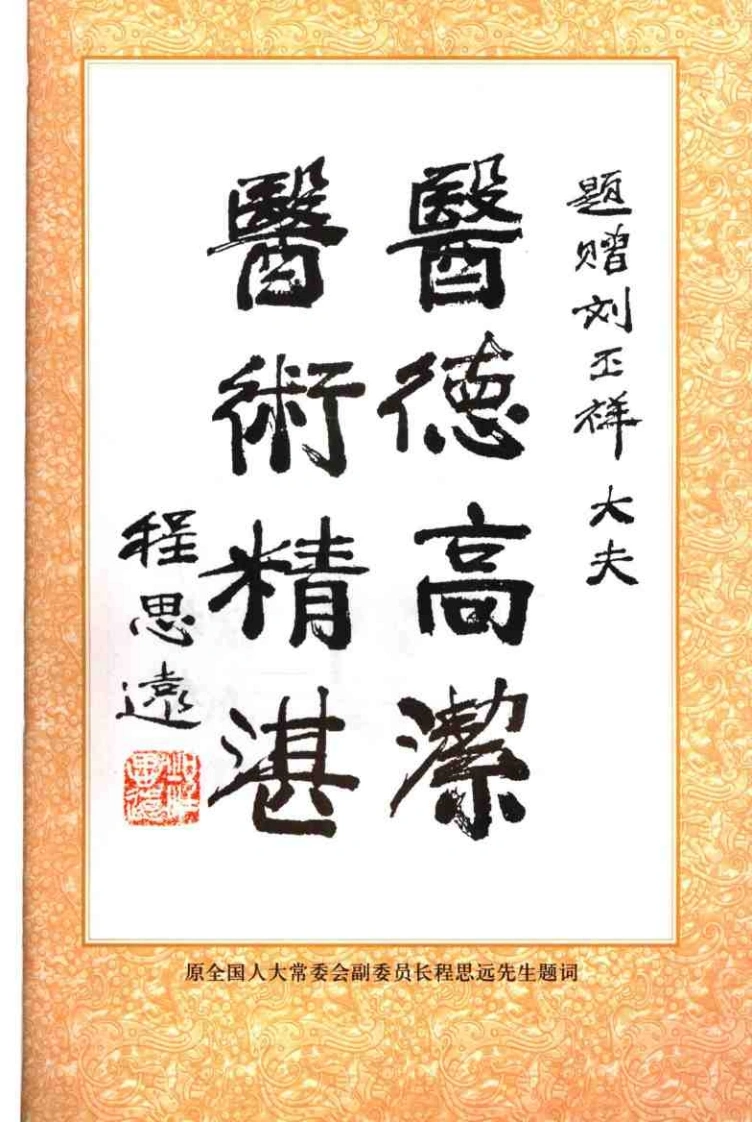 题赠刘玉祥 大夫
醫德高潔
醫術精湛
程思遠
原全国人大常委会副委员长程思远先生题词